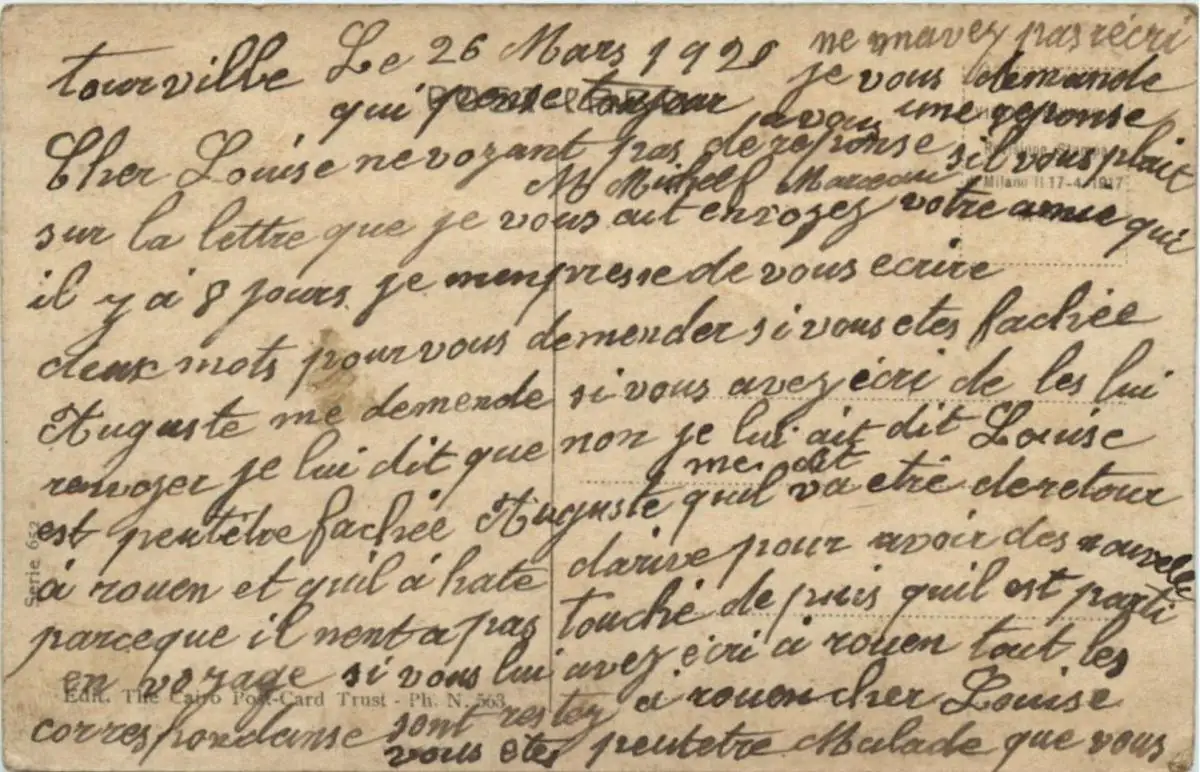 tourville Le 26 Mars 1921
Cher Louise ne voyant pas de réponse
sur la lettre que je vous ait envoyez
il y a 8 jours je mempresse de vous ecrire
deux mots pour vous demender si vous etes fachée
Auguste me demende si vous avez écri de les lui
renvoyer je lui dit que non je lui ait dit Louise
est peutétre fachée Auguste me dit quil va etre de retour
á rouen et quil á hate darive pour avoir des nouvelle
parceque il nent a pas touché de puis quil est parti
en voyage si vous lui avez écri á rouen tout les
correspondanse sont restez á rouen cher Louise
vous etes peutetre Malade que vous
ne mavez pas récri
je vous demande
une reponse
sil vous plait
votre amie qui
qui pense toujour
a vous
M Michelf Marceau
Milano II 17-4-1917
Serie 652
Edit. The Cairo Post-Card Trust - Ph. N. 563